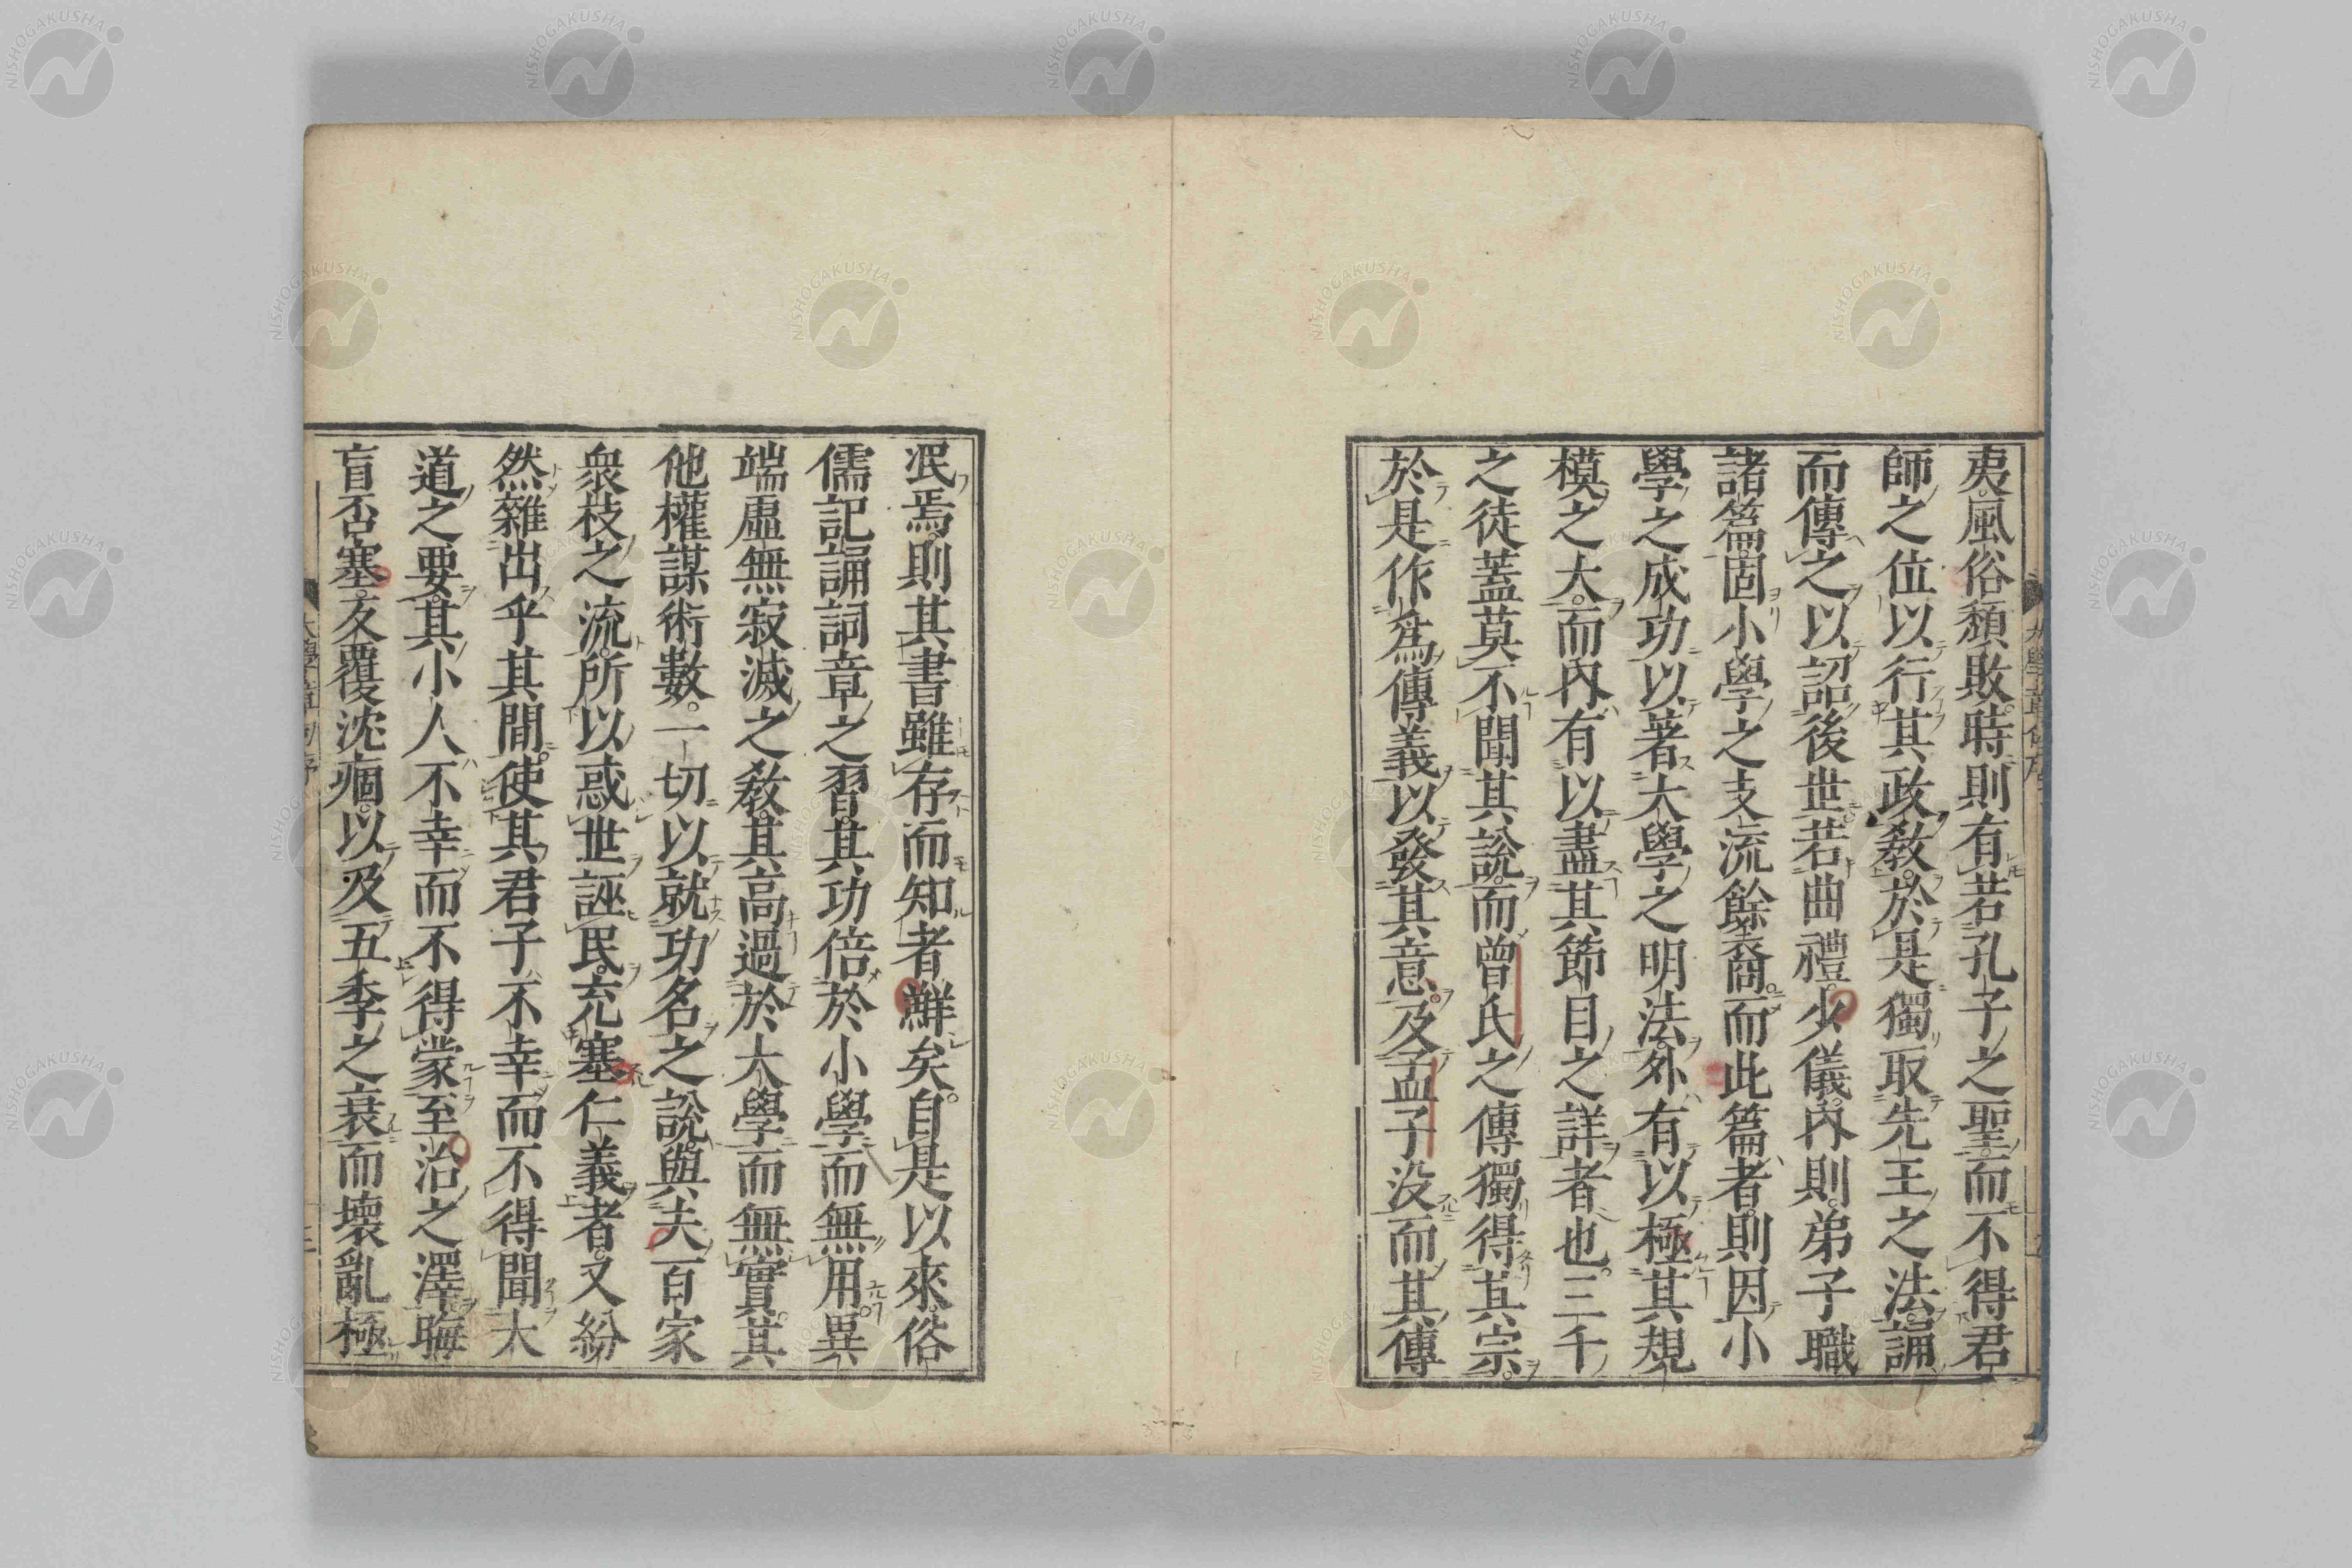 夷風俗頽敗時則有若孔子之聖而不得君
師之位以行其政敎於是獨取先王之法誦
而傳之以詔後世若曲禮少儀內則弟子職
諸篇固小學之支流餘裔而此篇者則因小
學之成功以著大學之明法外有以極其規
模之大而內有以盡其節目之詳者也三千
之徒蓋莫不聞其說而曾氏之傳獨得其宗
於是作爲傳義以發其意及孟子没而其傳
泯焉則其書雖存而知者鮮矣自是以來俗
儒記誦詞章之習其功倍於小學而無用異
端虛無寂滅之敎其高過於大學而無實其
他權謀術數一切以就功名之說與夫百家
衆枝之流所以惑世誣民充塞仁義者又紛
然雜出乎其間使其君子不幸而不得聞大
道之要其小人不幸而不得蒙至治之澤晦
盲否塞反覆沈痼以及五季之衰而壞亂極
NISHOGAKUSHA